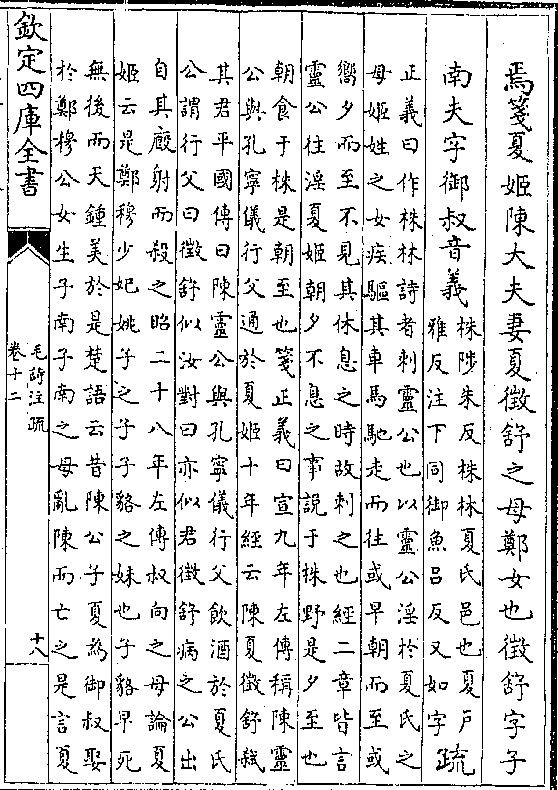 焉箋夏姬陳大夫妻夏徵舒之母鄭女也徵舒字子
南夫字御叔音義
株陟朱反株林夏氏邑也夏户
雅反注下同御魚吕反又如字
疏
正義曰作株林詩者刺靈公也以靈公淫於夏氏之
母姬姓之女疾驅其車馬馳走而往或早朝而至或
嚮夕而至不見其休息之時故刺之也經二章皆言
靈公往淫夏姬朝夕不息之事説于株野是夕至也
朝食于株是朝至也箋正義曰宣九年左傳稱陳靈
公與孔寧儀行父通於夏姬十年經云陳夏徵舒弑
其君平國傳曰陳靈公與孔寧儀行父飲酒於夏氏
公謂行父曰徵舒似汝對曰亦似君徵舒病之公出
自其廐射而殺之昭二十八年左傳叔向之母論夏
姬云是鄭穆少妃姚子之子子貉之妹也子貉早死
無後而天鍾美於是楚語云昔陳公子夏為御叔娶
於鄭穆公女生子南子南之母亂陳而亡之是言夏
欽定四庫全書
毛詩注疏
卷十二
十八